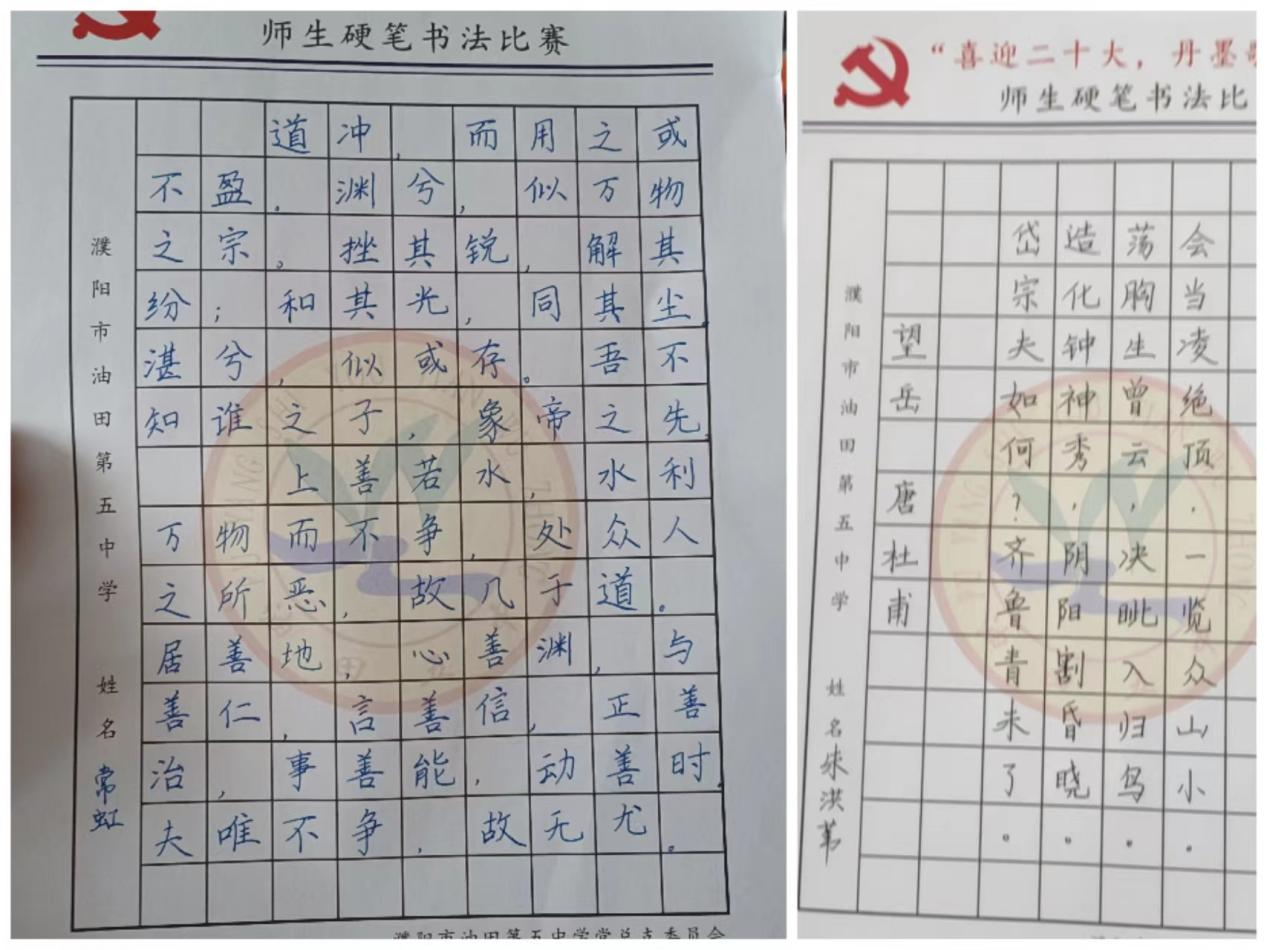 师生硬笔书法比赛
道冲，而用之或
不盈。渊兮，似万物
之宗。挫其锐，解其
纷；和其光，同其尘。
湛兮，似或存。吾不
知谁之子，象帝之先。
上善若水，水利
万物而不争，处众人
之所恶，故几于道。
居善地，心善渊，与
善仁，言善信，正善
治，事善能，动善时。
夫唯不争，故无尤。
濮阳市油田第五中学 姓名 常虹
濮阳市油田第五中学党总支委员会
“喜迎二十大，丹墨
师生硬笔书法比
濮阳市油田第五中学 姓名
望岳 唐 杜甫
岱宗夫如何？齐鲁青未了。
造化钟神秀，阴阳割昏晓。
荡胸生曾云，决眦入归鸟。
会当凌绝顶，一览众山小。